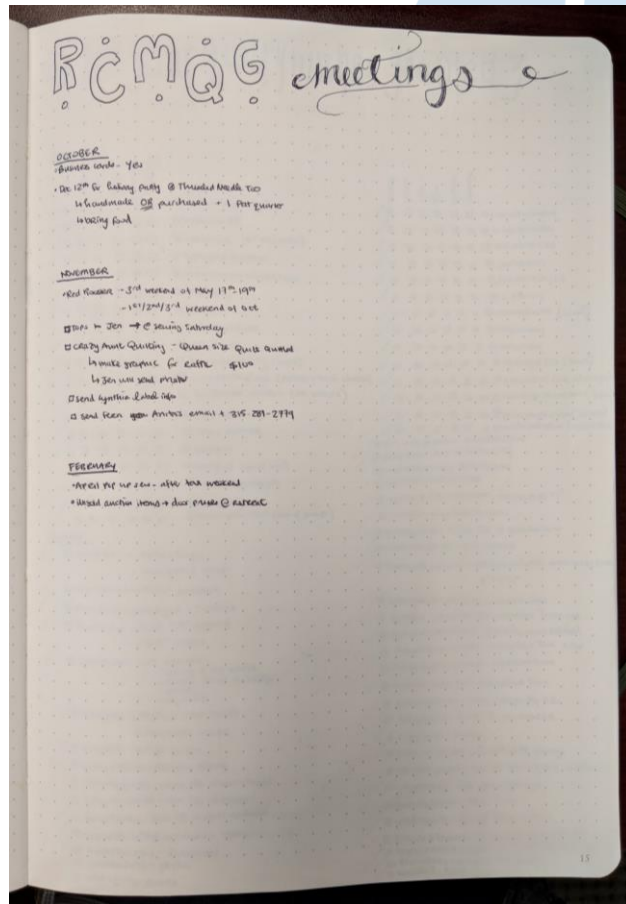 RCMQG meetings
OCTOBER
• Business cards - Yes
• Dec 12th for holiday party @ Threaded Needle Too
↳ handmade OR purchased + 1 fat quarter
↳ bring food
NOVEMBER
• Red - 3rd weekend of May 17th-19th
- 1st/2nd/3rd weekend of Oct
□ to Jen → @ sewing Saturday
□ Crazy Aunt Quilting - Queen Size Quilt Quilted
↳ make graphic for raffle $100
↳ Jen will send
□ send Cynthia label info
□ send Anita's email + 315-281-2779
FEBRUARY
• April Pop up sew - after weekend
• unsold auction items → door prizes @ retreat
15